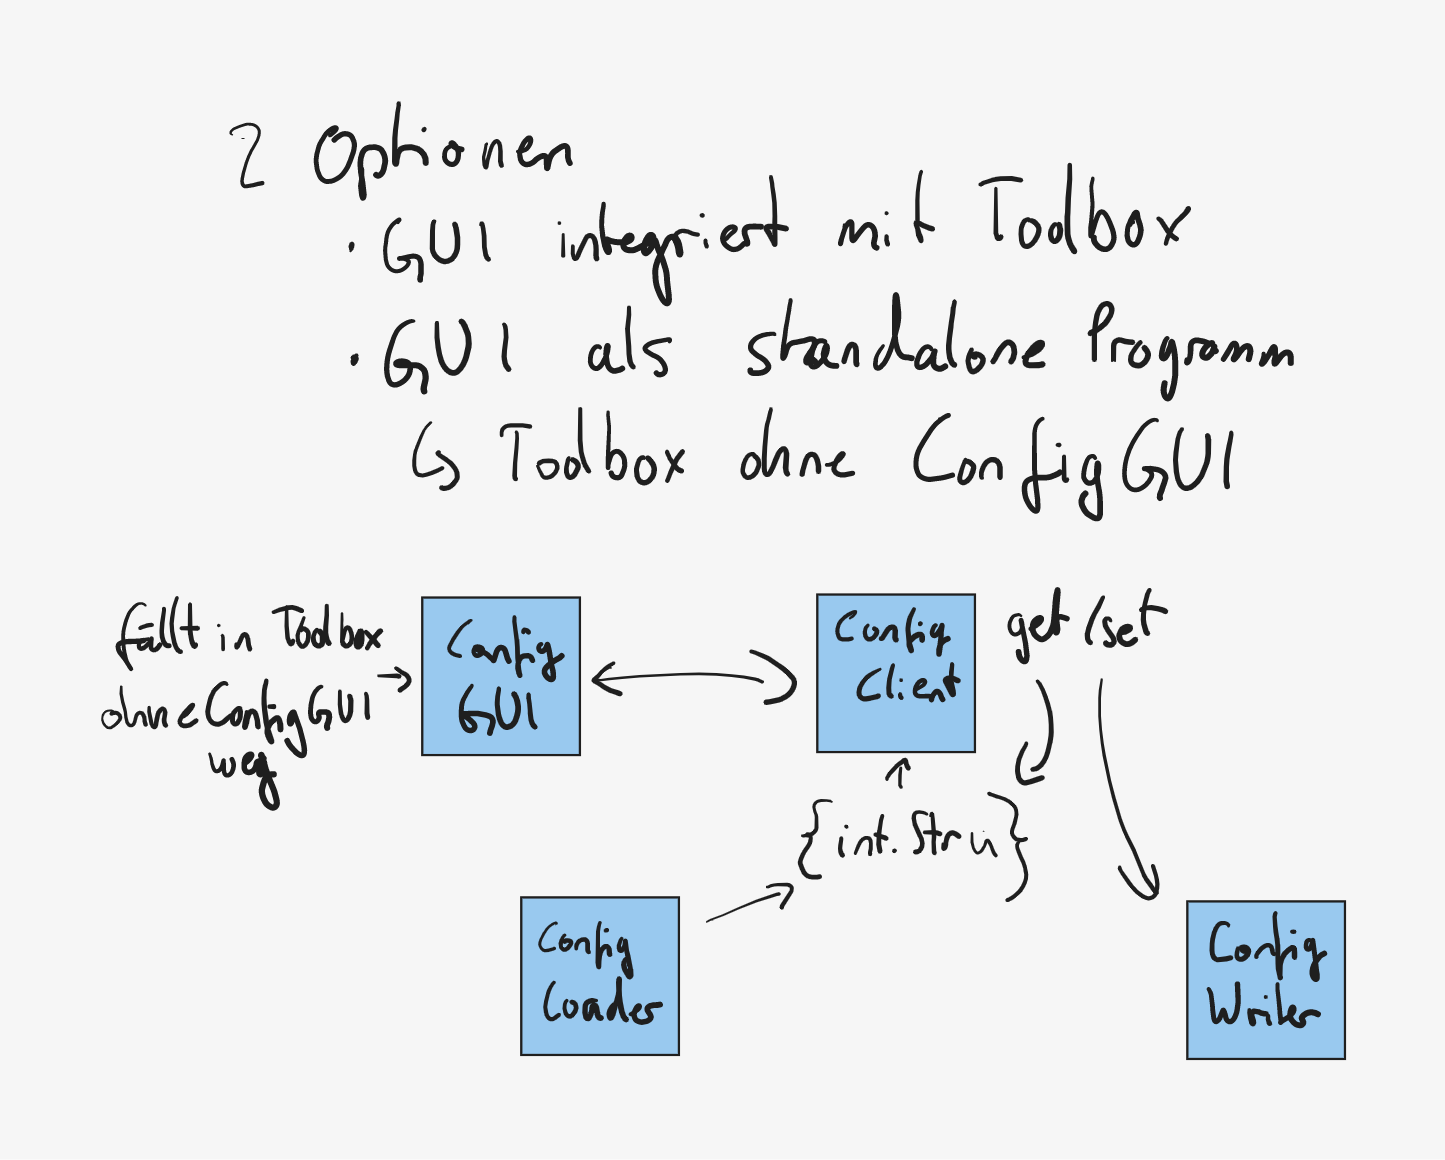 2 Optionen
· GUI integriert mit Toolbox
· GUI als standalone Programm
↳ Toolbox ohne Config GUI
fällt in Toolbox
ohne Config GUI
weg
Config
GUI
Config
Client
get/set
{int. Strin}
Config
Loader
Config
Writer